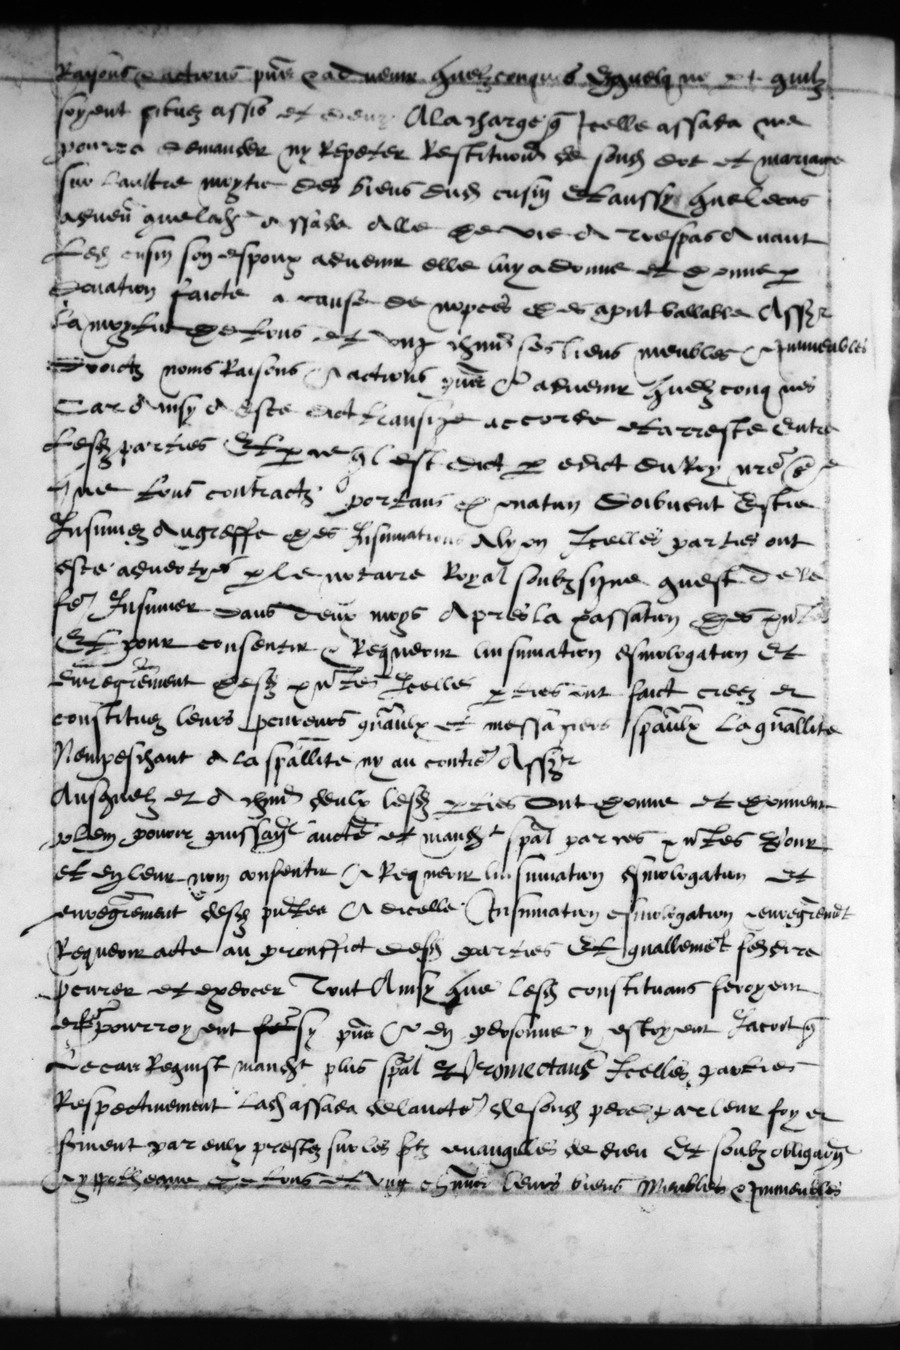 Raisons & actions pñs & advenir quelzconques enquelq lieu et quilz
soyent situez assis et A la charge q Icelle assada ne
pourra demander ny Repeter Restitution de sond dot et mariage
sur laultre moytie des biens dud cusin Et aussy que le cas
advenu que lad Assada alle de vie A trespas Avant
led cusin son espoux advenir elle luy a donne et donne p
donation faicte a cause de nopces des aput vallable Assr
La moytie de tous et ung chun ses biens meubles & Immeubles
Droictz noms Raisons & actions pñs & advenir quelzconques
Car Ainsy A este dict transige accorde et arreste Entre
lesd parties Et p ce ql est dict p edict du Roy nre sr
Que tous contractz portans donnation Doibvent Estre
Insinuez Au greffe des Insinuations Alyon Icelles parties ont
este advertyes p le notaire Royal soubzsigne quest de le
fe Insinuer dans deux moys Apres la passation des pntes
Et pour consentir & Requerir linsinuation esmologation Et
enregrement desd pntes Icelles pties ont faict creez et
constituez leurs pcureurs gñaulx et messagiers spãulx La gñallite
Nempeschant A la spãllite ny au contre Assr
Ausquelz et A chun deulx lesd pties Ont donne et donnent
plein pouvoir puissance aucte et mandt spãl par ces pntes Pour
et en leur nom consentir & Requerir linsinuation esmologation et
enregrement desd pntes & dicelle Insinuation esmologation enregrement
Requerir acte au prouffict desd parties Et gnallement fe dire
pcurer et exercer Tout Ainsy que lesd constituans feroyent
et fe pourroyent sy pñs & en personne y estoyent Jacoit q
Le cas Requist mandt plus spãl Promectans Icelles parties
Respectivement Lad assada de laucte de sond pere par leur foy et
serment par eulx prestez sur les stz evangilles de dieu Et soubz obligaon
& yppotheque de tous et ung chuns leurs biens Meubles & Immeubles